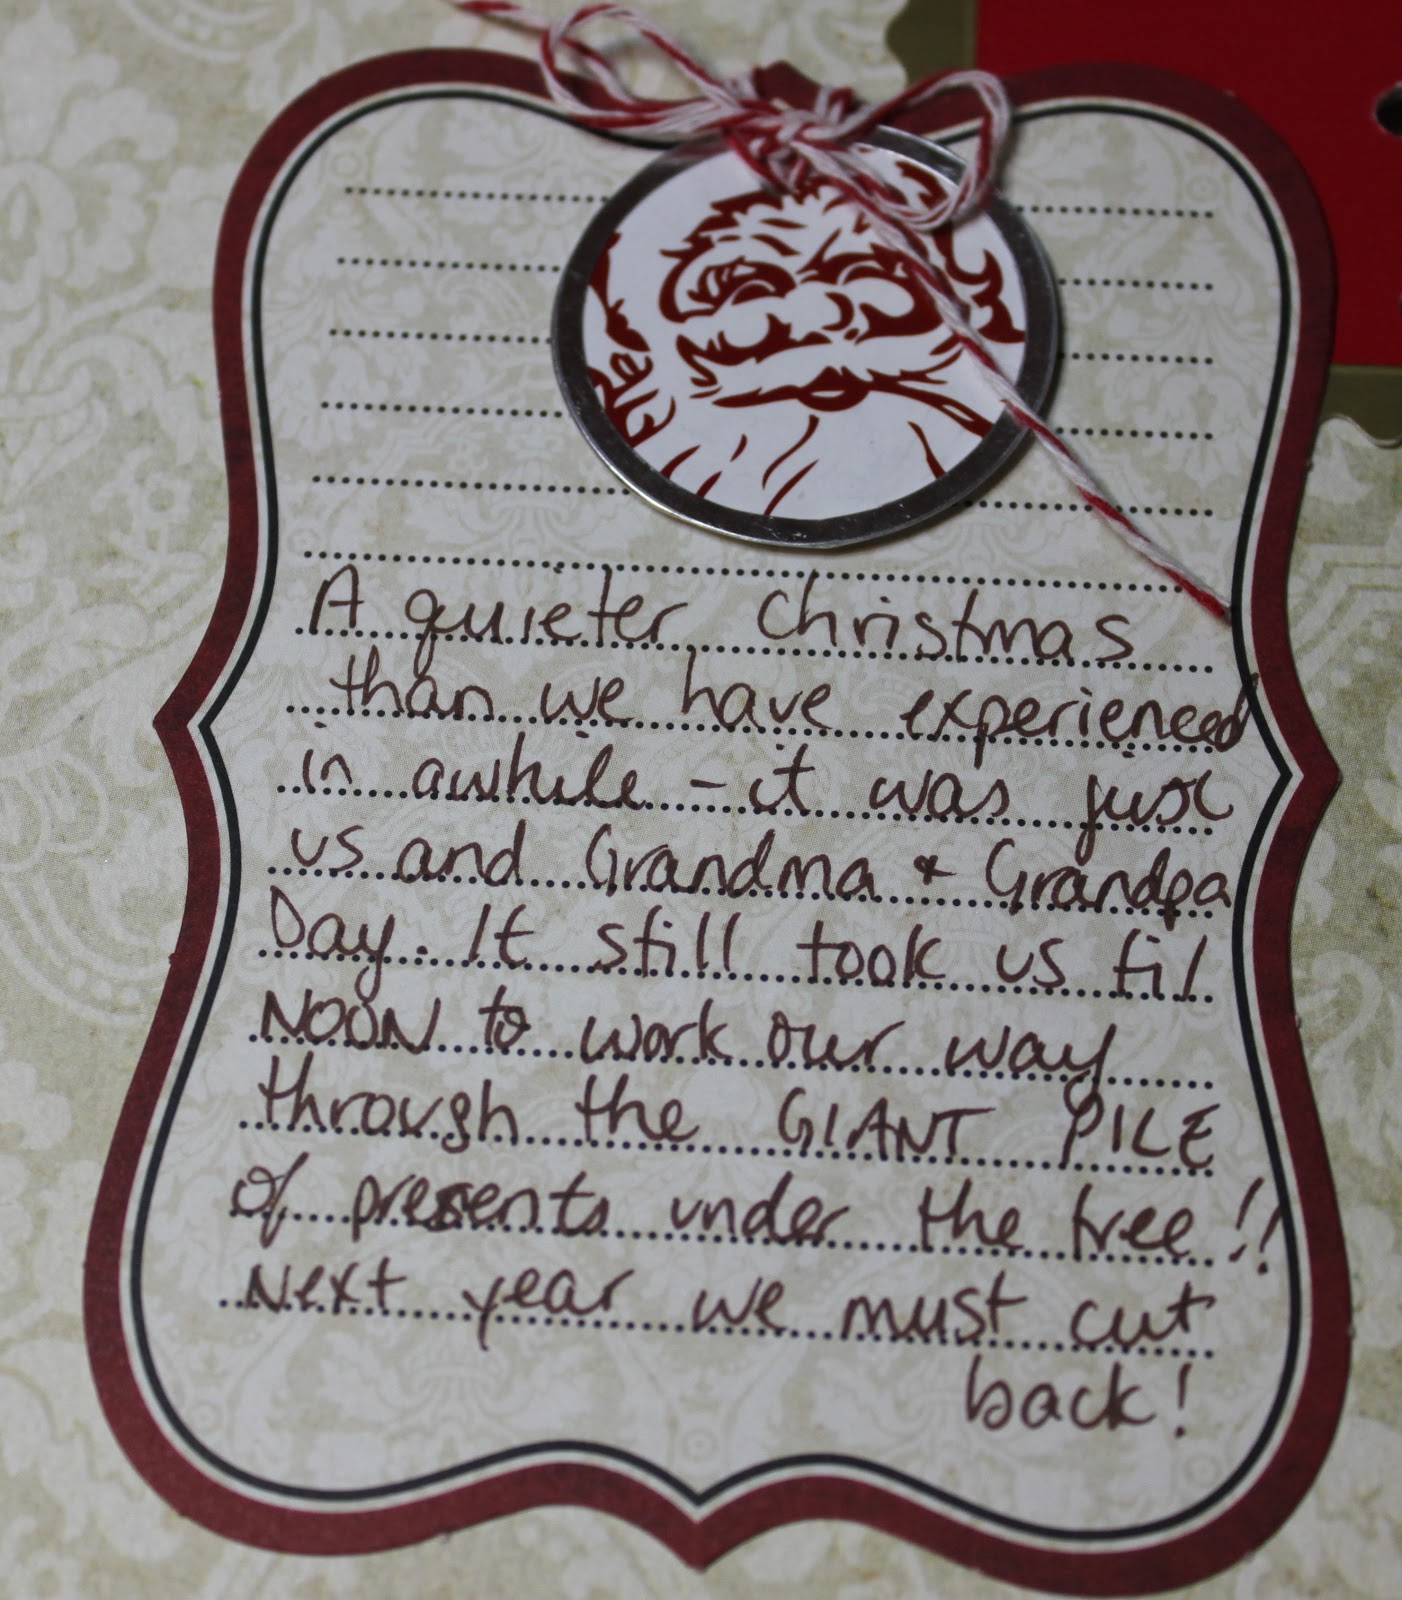 A quieter Christmas
than we have experienced
in awhile - it was just
us and Grandma & Grandpa
Day. It still took us til
NOON to work our way
through the GIANT PILE
of presents under the tree!!
Next year we must cut
back!